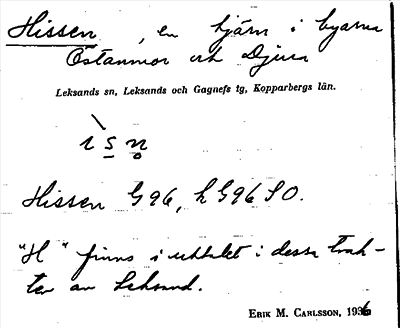 Hissen, en tjärn i byarna
Östanmor och Djura
Leksands sn, Leksands och Gagnefs tg, Kopparbergs län.
ìsn
Hissen G96, h G96 SO.
"H" finns i uttalet i dessa trak-
ter av Leksand.
ERIK M. CARLSSON, 1936